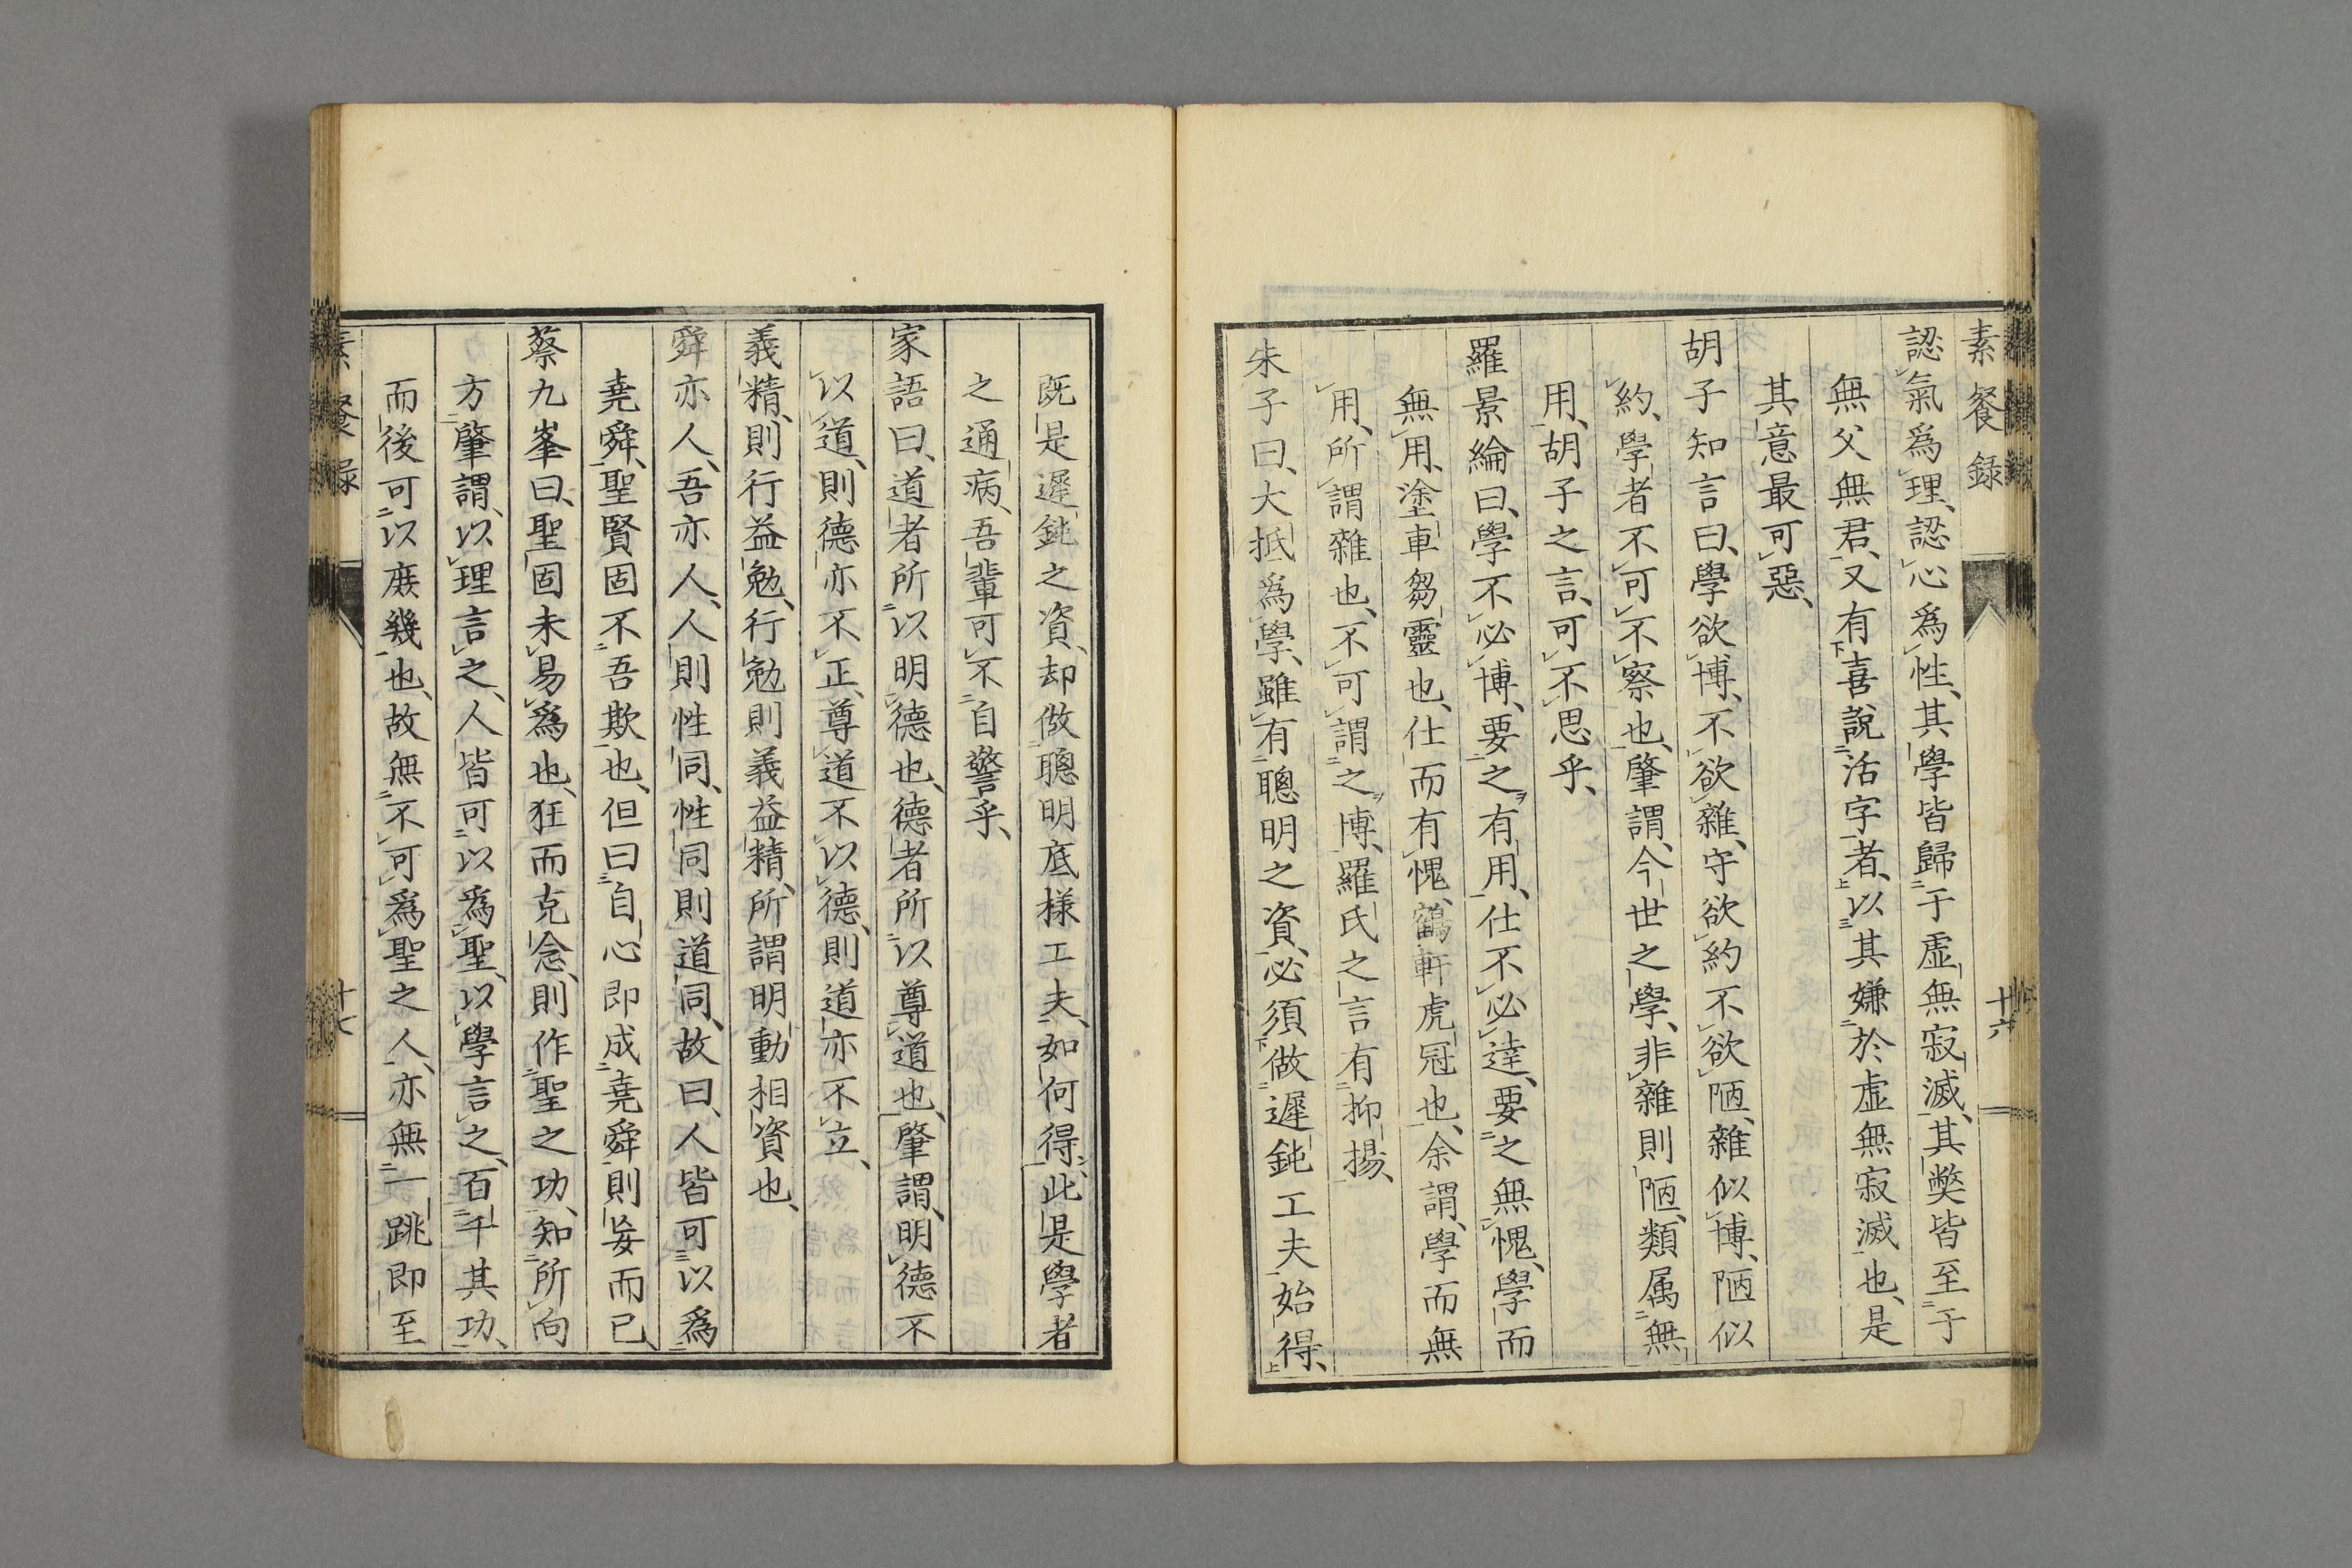 素餐録
十六
認氣爲理、認心爲性、其學皆歸于虛無寂滅、其獘皆至于
無父無君、又有喜說活字者、以其嫌於虛無寂滅也、是
其意最可惡、
胡子知言曰、學欲博、不欲雜、守欲約不欲陋、雜似博、陋似
約、學者不可不察也、肇謂、今世之學、非雜則陋、類属無
用、胡子之言、可不思乎、
羅景綸曰、學不必博、要之有用、仕不必達、要之無愧、學而
無用、塗車芻靈也、仕而有愧、鶴軒虎冠也、余謂、學而無
用、所謂雜也、不可謂之博、羅氏之言有抑揚、
朱子曰、大抵爲學、雖有聰明之資、必須做遲鈍工夫、始得、
既是遲鈍之資、却做聰明底様工夫、如何得、此是學者
之通病、吾輩可不自警乎、
家語曰、道者所以明德也、德者所以尊道也、肇謂、明德不
以道、則德亦不正、尊道不以德、則道亦不立、
義精、則行益勉、行勉則義益精、所謂明動相資也、
舜亦人、吾亦人、人則性同、性同則道同、故曰、人皆可以爲
堯舜、聖賢固不吾欺也、但曰自心即成堯舜則妄而已、
蔡九峯曰、聖固未易爲也、狂而克念、則作聖之功、知所向
方、肇謂、以理言之、人皆可以爲聖、以學言之、百千其功、
而後可以庶幾也、故無不可爲聖之人、亦無一跳即至
素餐録
十七